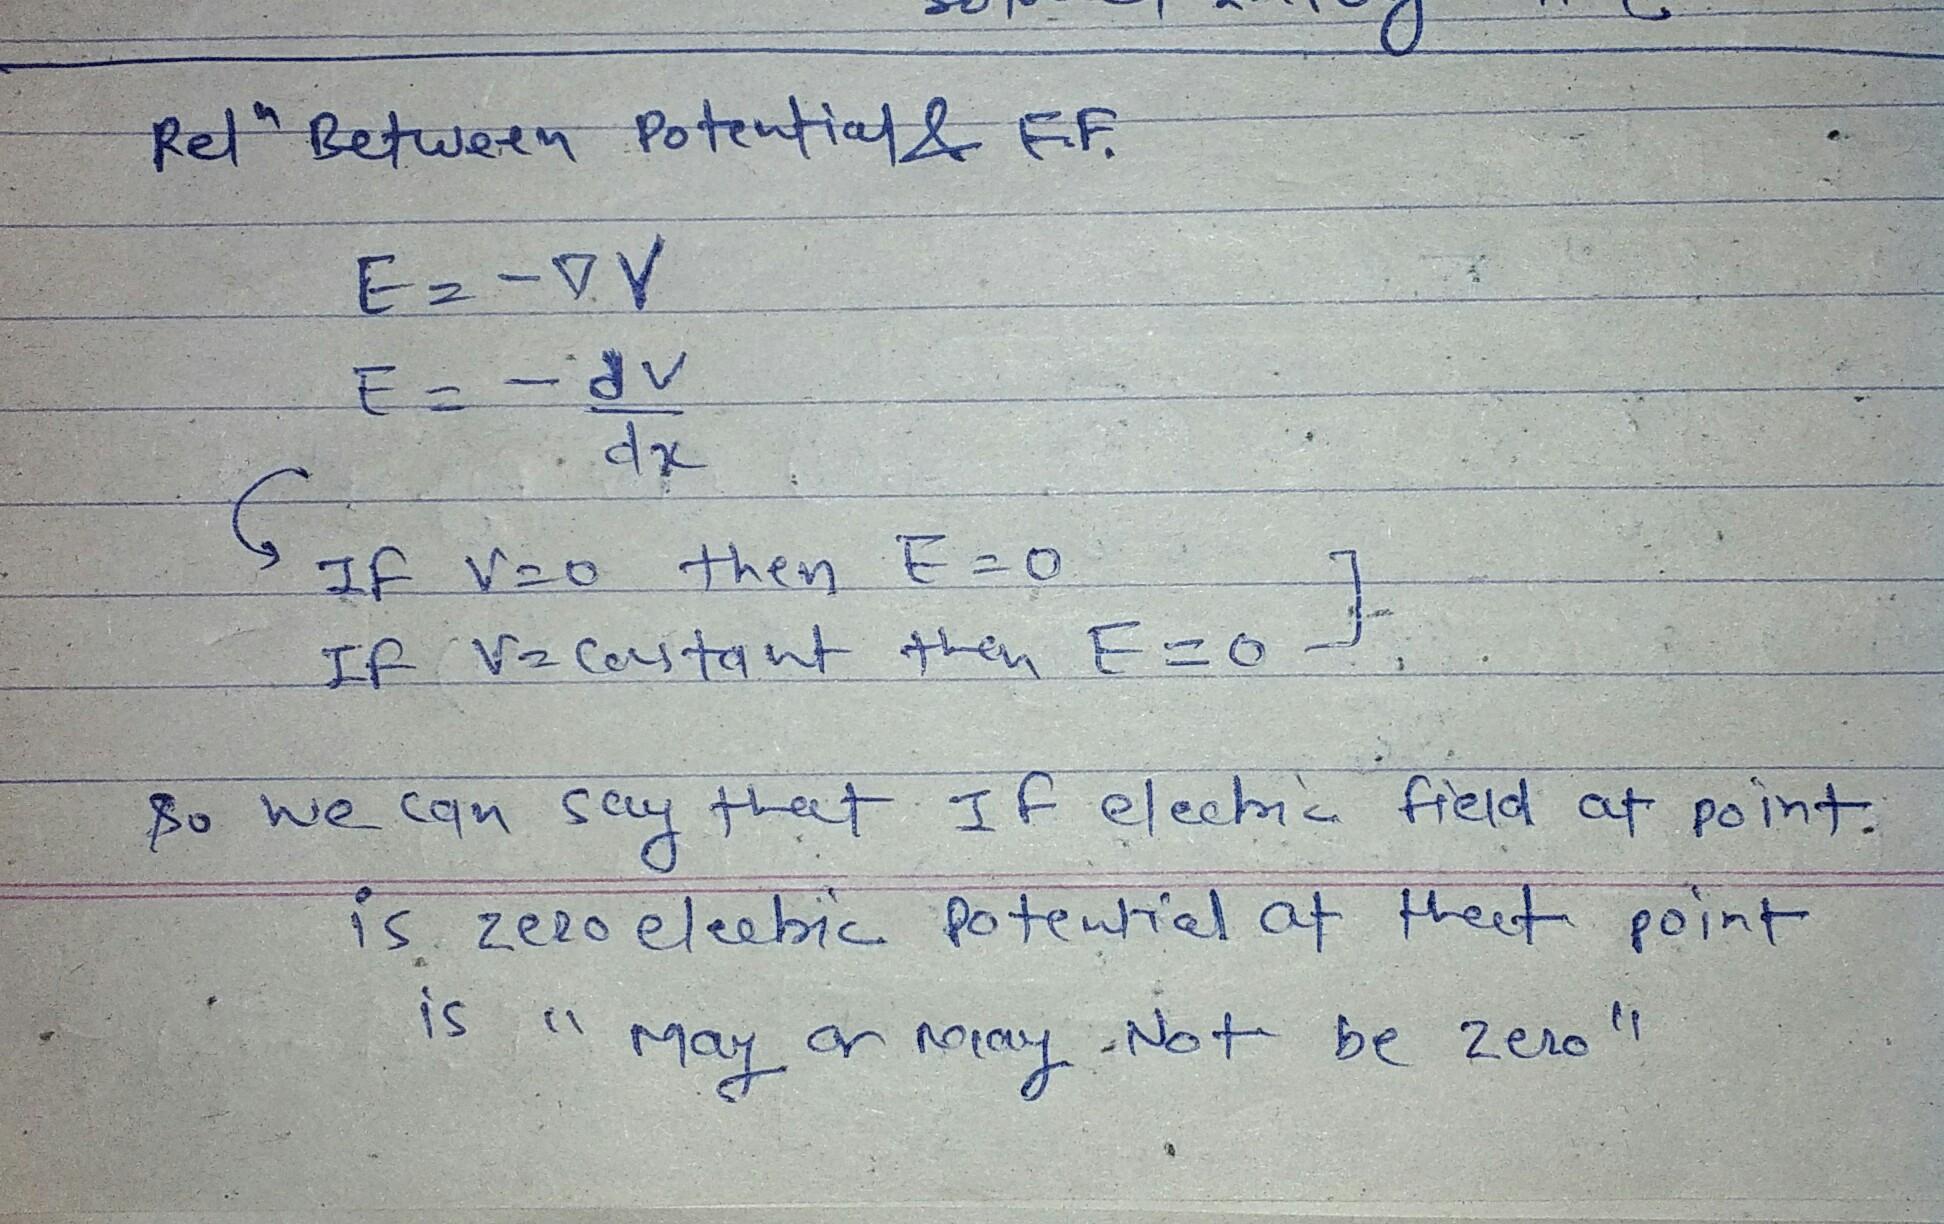 Relⁿ Between Potential & E.F.
E = -∇V
E = - dV
dx
If V=0 then E=0
If V= Constant then E=0
So we can say that If electric field at point.
is zero electric potential at that point
is "may or may Not be zero"